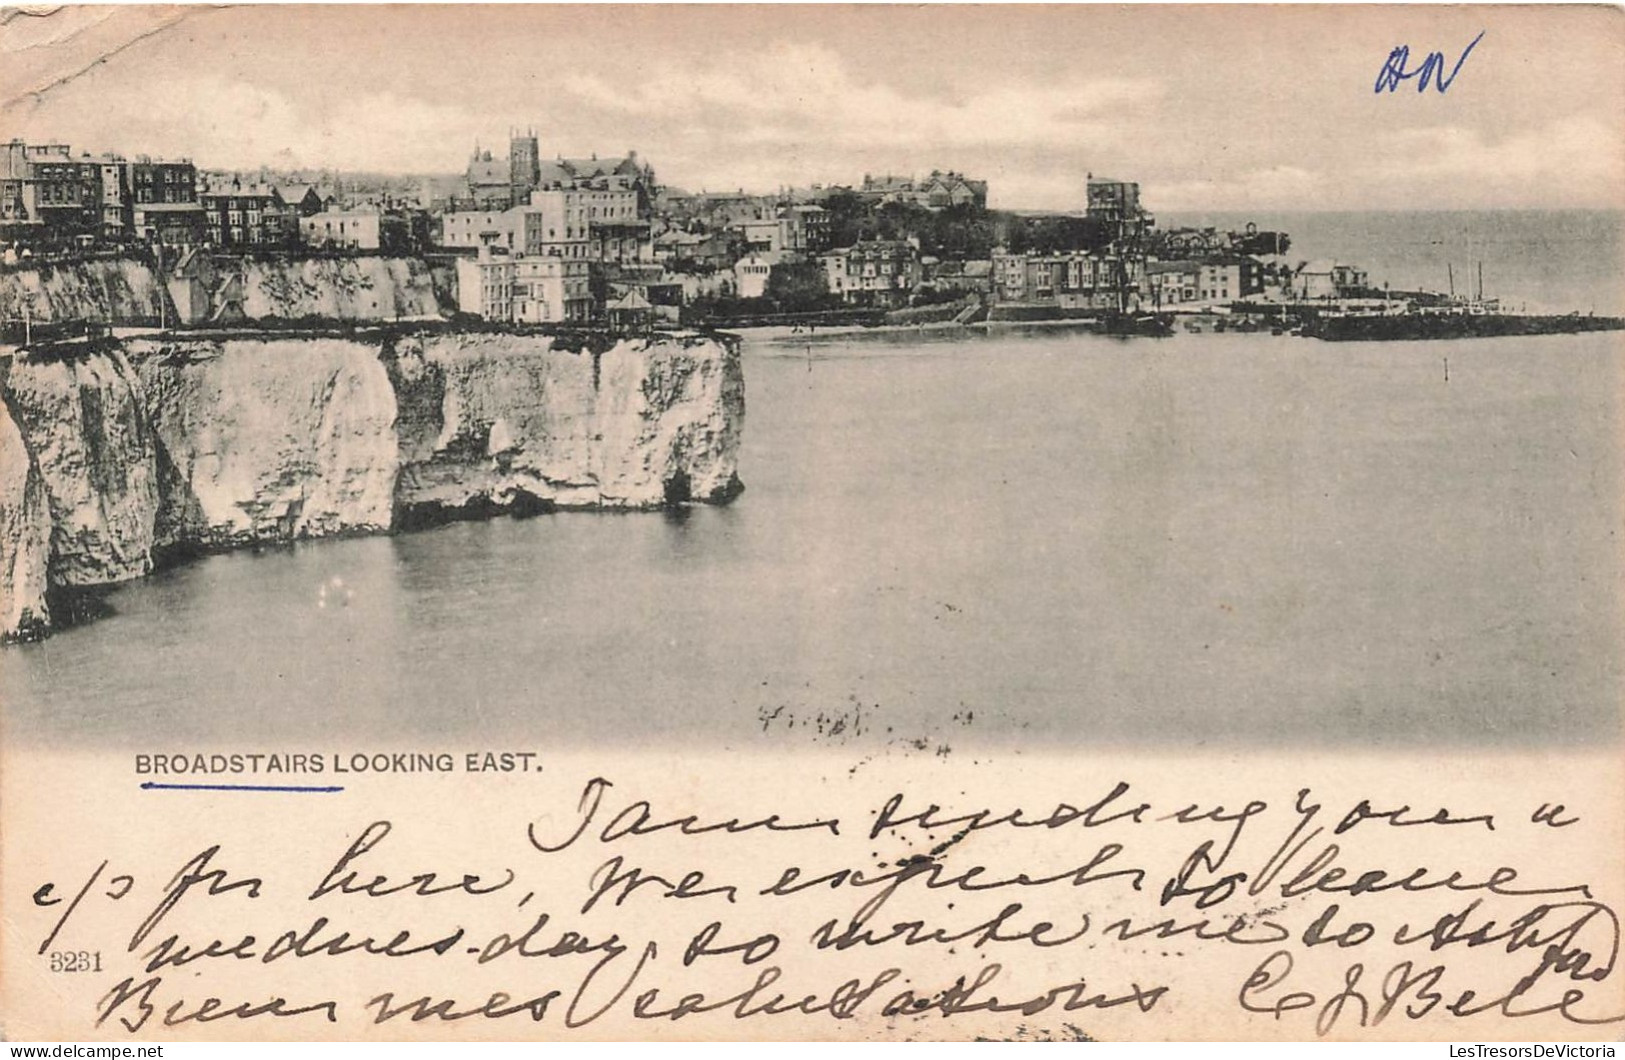 AN
BROADSTAIRS LOOKING EAST.
I am sending you a
c/s for here, We expect to leave
wednes-day so write me to Ashford
3231
Bien mes salutations C J Bell
LesTresorsDeVictoria
© delcampe.net